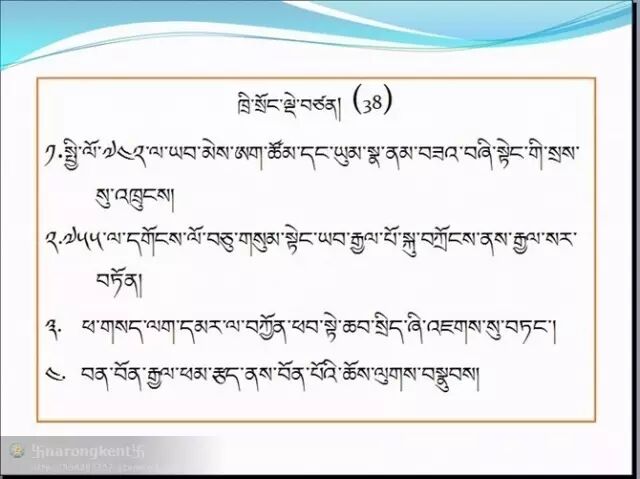 ཁྲི་སྲོང་ལྡེ་བཙན། (38)
༡.སྤྱི་ལོ་༧༤༢་ལ་ཡབ་མེས་ཨག་ཚོམ་དང་ཡུམ་སྣ་ནམ་བཟའ་བཞི་སྟེང་གི་སྲས་
སུ་འཁྲུངས།
༢.༧༥༥་ལ་དགོངས་ལོ་བཅུ་གསུམ་སྟེང་ཡབ་རྒྱལ་པོ་སྐུ་བཀྲོངས་ནས་རྒྱལ་སར་
བཏོན།
༣. ཕ་གསད་ལག་དམར་ལ་བཀྱོན་ཕབ་སྟེ་ཆབ་སྲིད་ཞི་འཇགས་སུ་བཏང་།
༤. བན་བོན་རྒྱལ་ཕམ་རྩད་ནས་བོན་པོའི་ཆོས་ལུགས་བསྣུབས།
卐narongkent卐